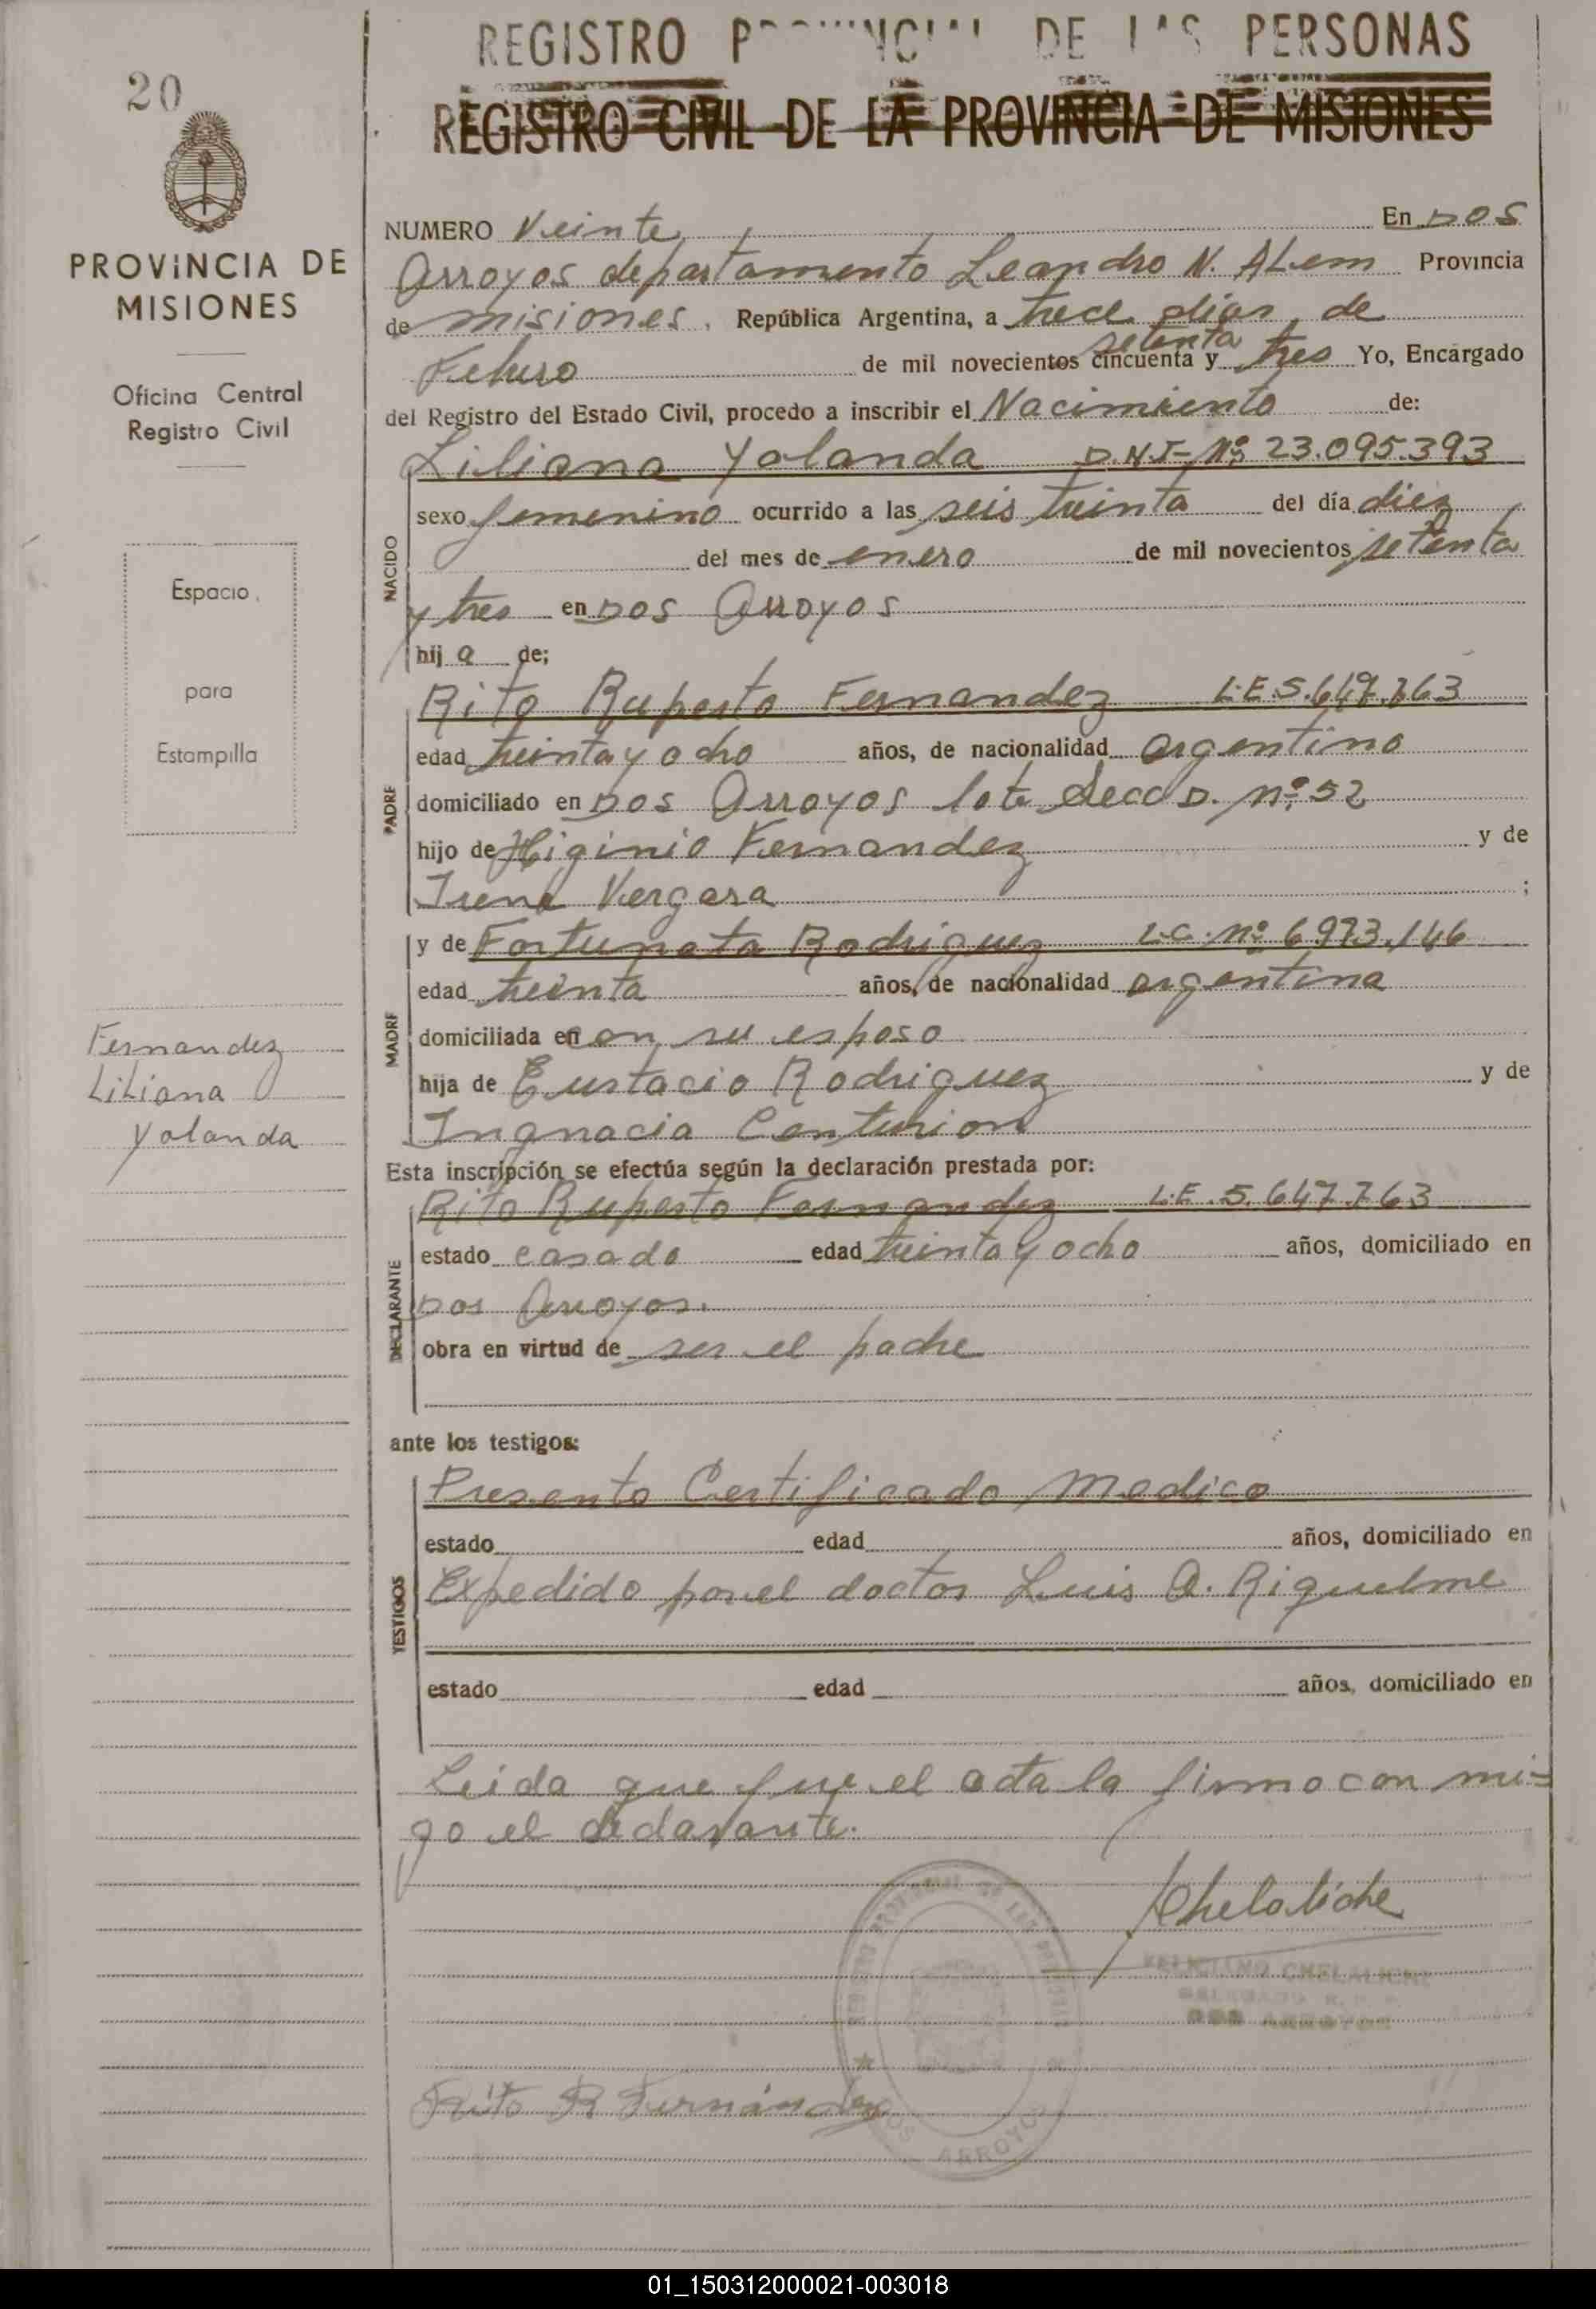 20
REGISTRO PROVINCIAL DE LAS PERSONAS
REGISTRO CIVIL DE LA PROVINCIA DE MISIONES
PROVINCIA DE
MISIONES
Oficina Central
Registro Civil
Espacio
para
Estampilla
Fernandez
Liliana
Yolanda
NUMERO Veinte En Dos
Arroyos departamento Leandro N. ALem Provincia
de misiones. República Argentina, a trece dias de
Febrero de mil novecientos cincuenta setenta y tres Yo, Encargado
del Registro del Estado Civil, procedo a inscribir el Nacimiento de:
Liliana Yolanda D.N.I- Nº 23.095.393
NACIDO
sexo femenino ocurrido a las seis treinta del día diez
del mes de enero de mil novecientos setenta
y tres en Dos Arroyos
hij a de;
PADRE
Rito Ruperto Fernandez L.E.5.647.763
edad treinta y ocho años, de nacionalidad argentino
domiciliado en Dos Arroyos lote Secc D. nº 52
hijo de Higinio Fernandez y de
Irene Vergara ;
MADRE
y de Fortunata Rodriguez L.C. Nº 6.973.146
edad treinta años, de nacionalidad argentina
domiciliada en con su esposo
hija de Eustacio Rodriguez y de
Ingnacia Centurion
Esta inscripción se efectúa según la declaración prestada por:
DECLARANTE
Rito Ruperto Fernandez L.E. 5.647.763
estado casado edad treinta y ocho años, domiciliado en
Dos Arroyos.
obra en virtud de ser el padre
ante los testigos:
TESTIGOS
Presento Certificado Medico
estado edad años, domiciliado en
Expedido por el doctor Luis A. Riquelme
estado edad años, domiciliado en
Leida que fue el acta la firma con mi=
go el declarante.
Chelaliche
FELICIANO CHELALICHE
DELEGADO R. P. P.
DOS ARROYOS
REGISTRO PROVINCIAL DE LAS PERSONAS
DOS ARROYOS
Rito R Fernández
01_150312000021-003018